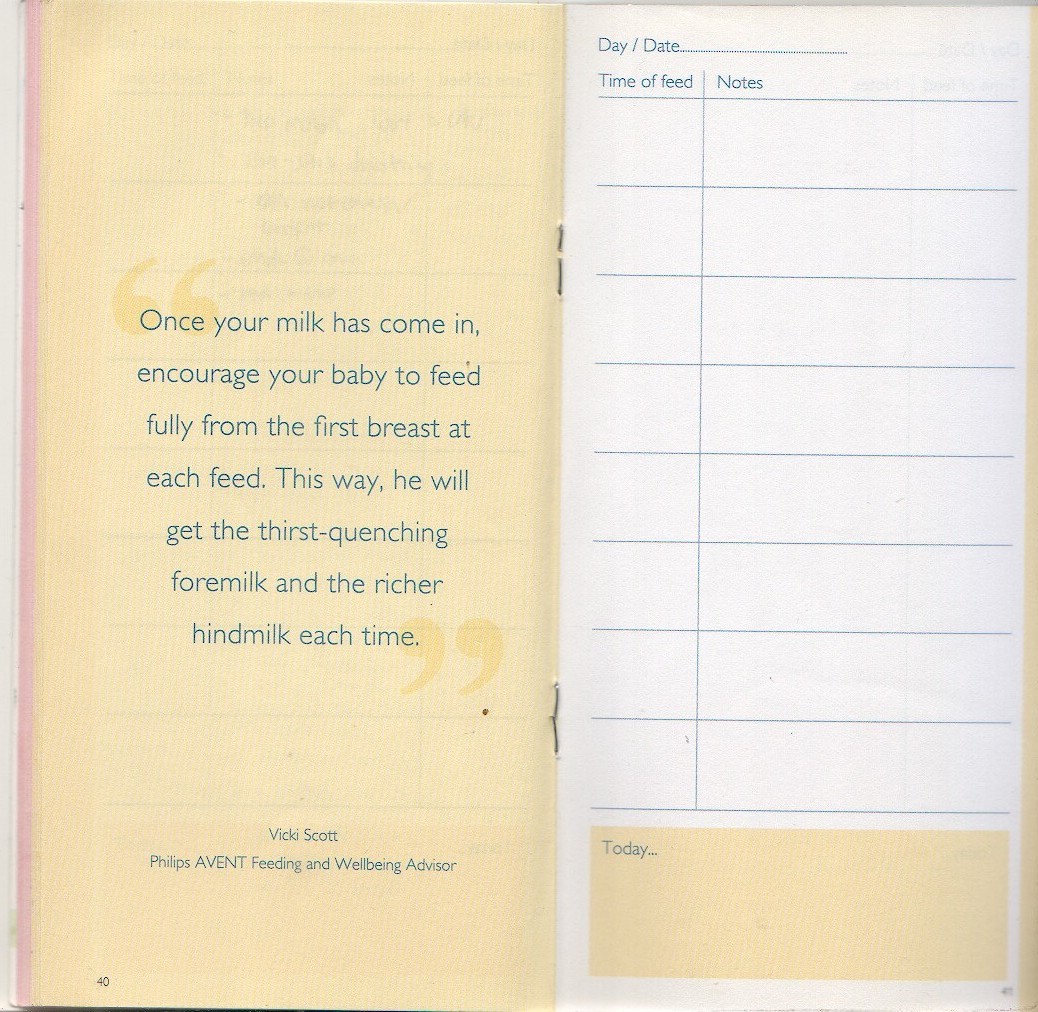 Once your milk has come in,
encourage your baby to feed
fully from the first breast at
each feed. This way, he will
get the thirst-quenching
foremilk and the richer
hindmilk each time.
Vicki Scott
Philips AVENT Feeding and Wellbeing Advisor
40
Day / Date
Time of feed Notes
Today...